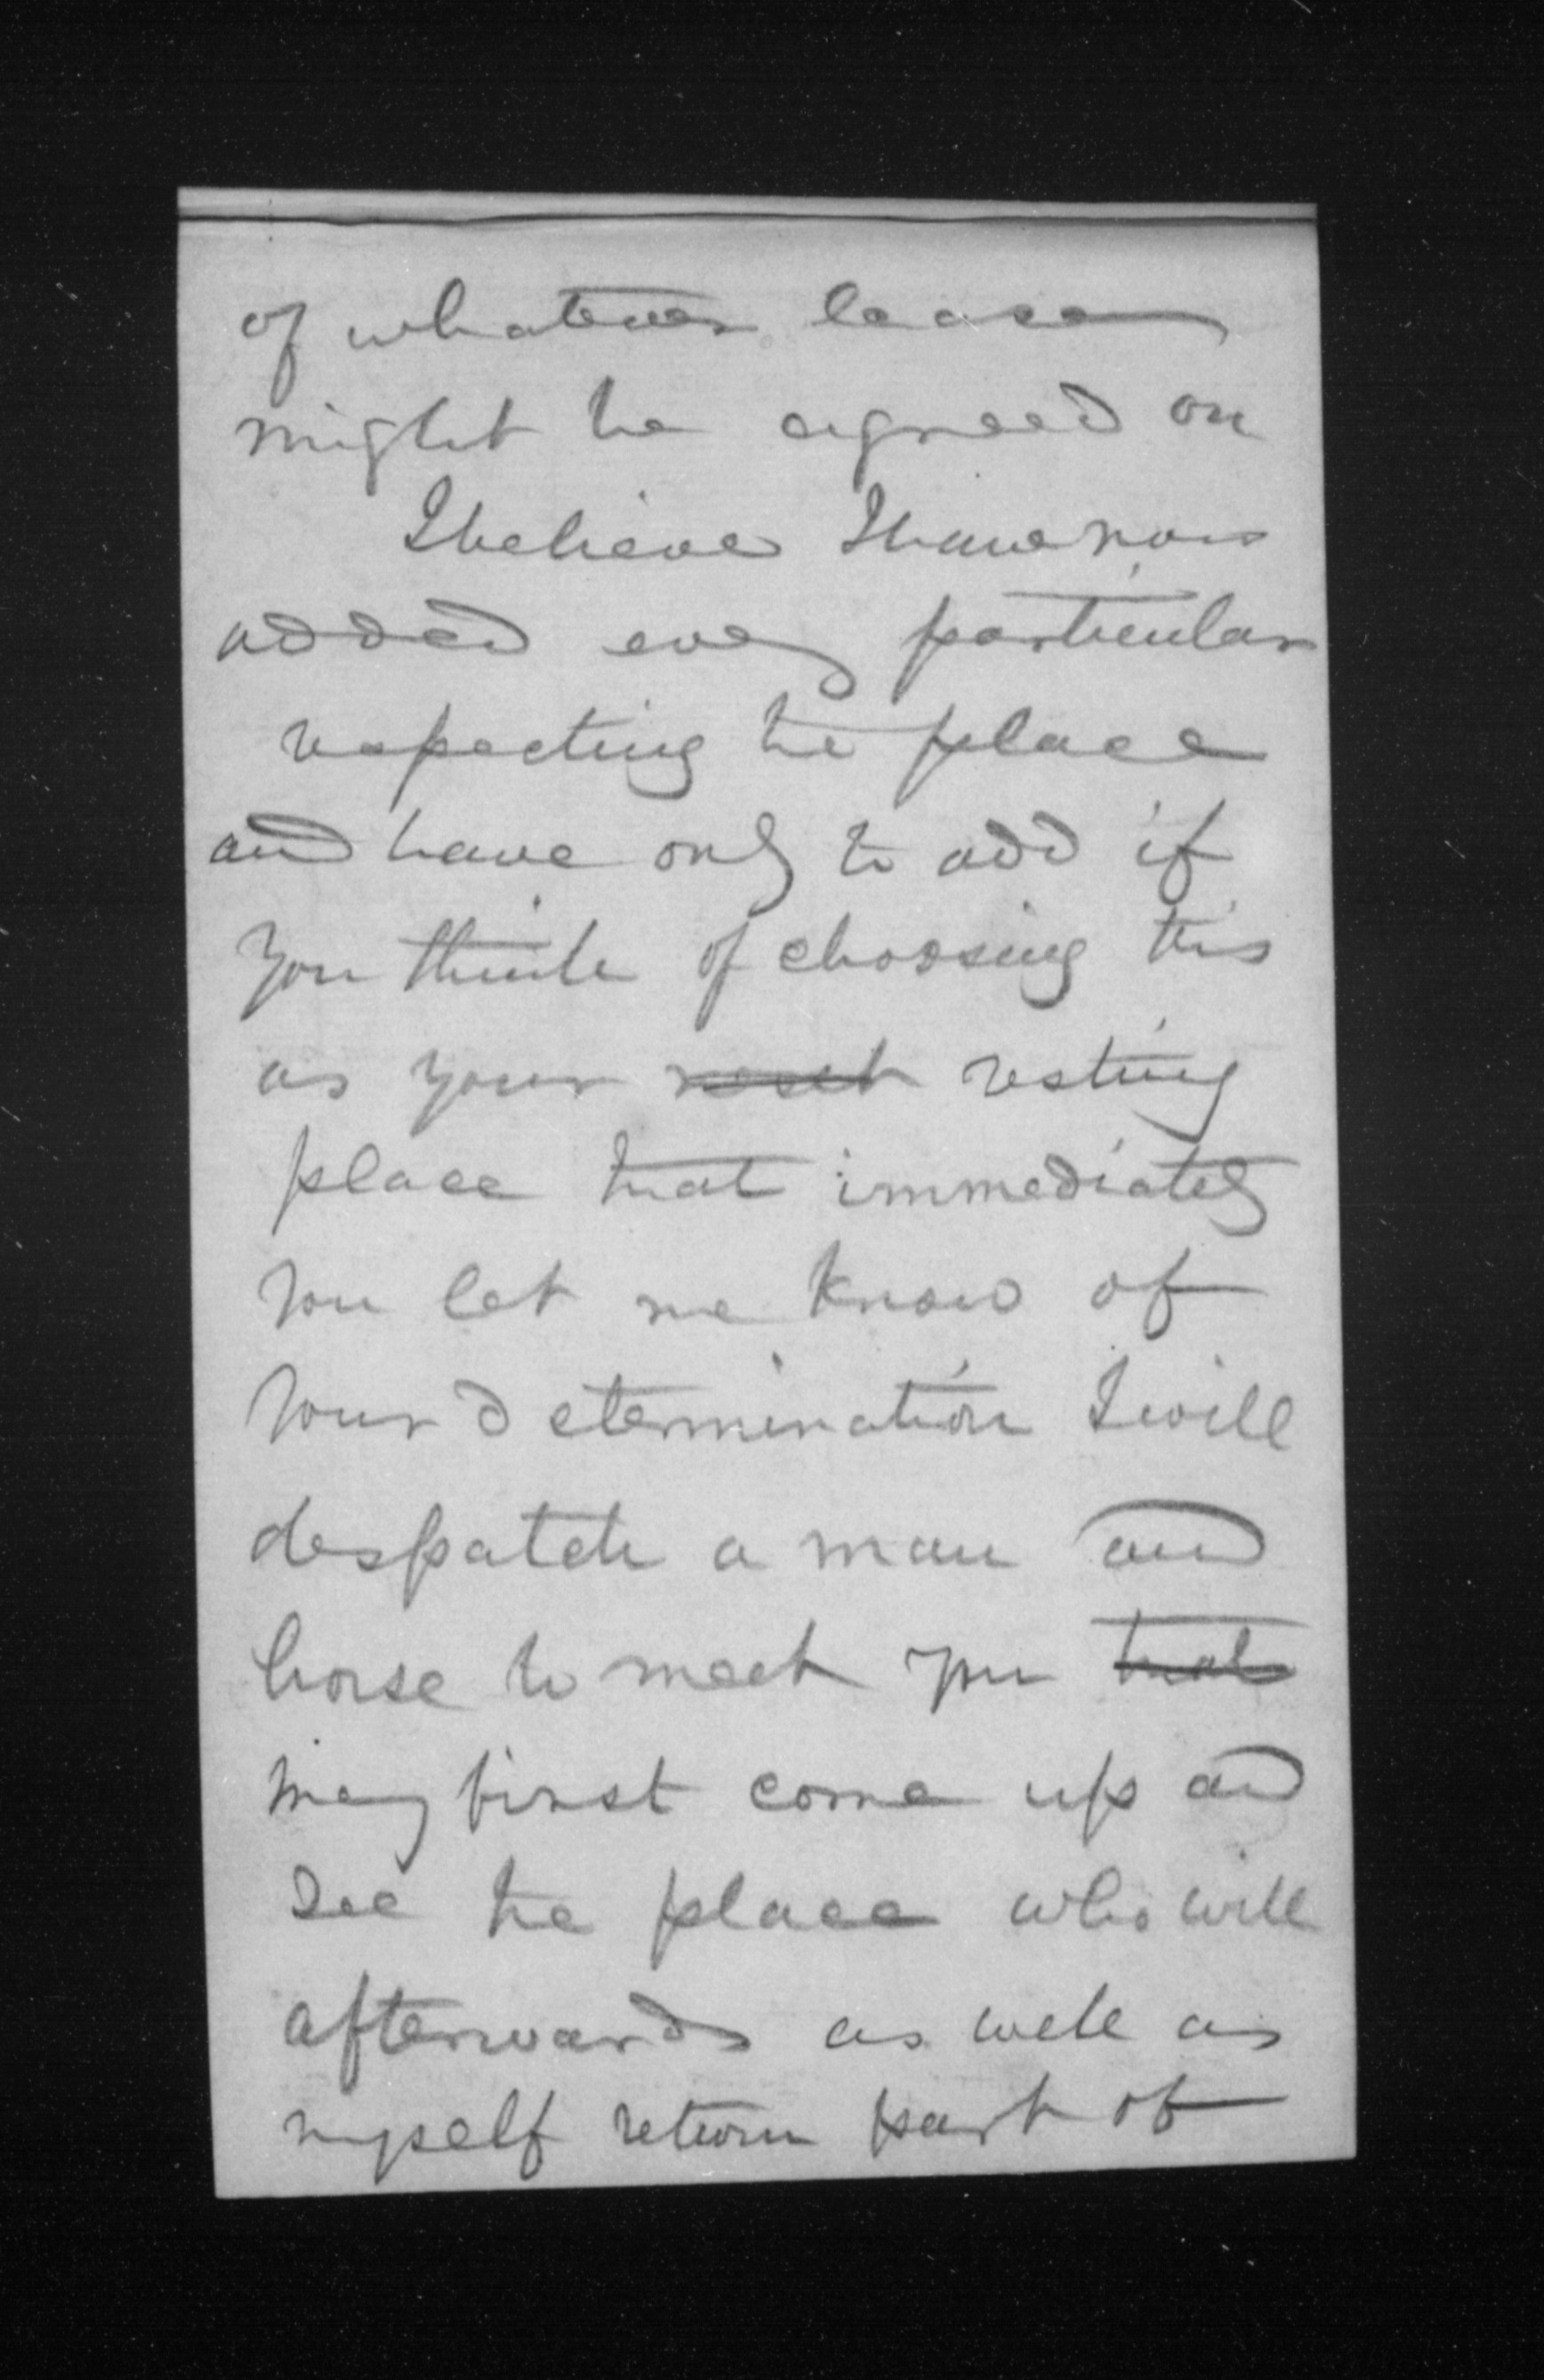 of whatever lease
might be agreed on
I believe I have now
added every particular
respecting the place
and have only to add if
you think of choosing this
as your resting
place that immediately
you let me know of
your determination I will
despatch a man and
horse to meet you that
may first come up and
see the place who will
afterwards as well as
myself return part of